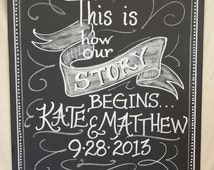 This is
how
our
STORY
BEGINS...
KATE & MATTHEW
9·28·2013